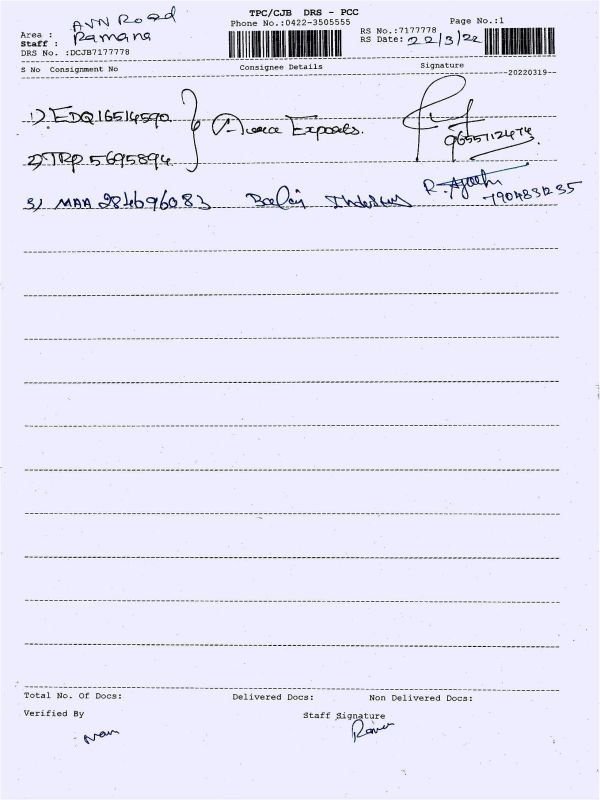 TPC/CJB DRS - PCC
Phone No.:0422-3505555
Page No.:1
Area : AVN Road
Staff : Ramana
DRS No. :DCJB7177778
RS No.:7177778
RS Date: 22/3/22
S No Consignment No Consignee Details Signature
20220319
1) EDQ16514590
Exports.
9655712474
2) TRP 5695894
3) MAA 284696083
R.
7904831235
Total No. Of Docs: Delivered Docs: Non Delivered Docs:
Verified By Staff Signature